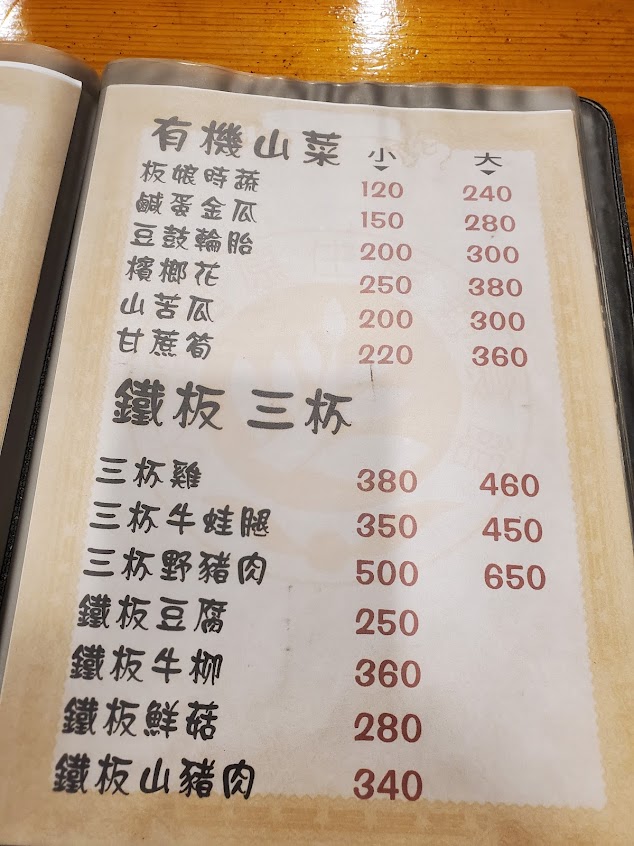 有機山菜 小 大
板娘時蔬 120 240
鹹蛋金瓜 150 280
豆鼓輪胎 200 300
檳榔花 250 380
山苦瓜 200 300
甘蔗筍 220 360
鐵板 三杯
三杯雞 380 460
三杯牛蛙腿 350 450
三杯野豬肉 500 650
鐵板豆腐 250
鐵板牛柳 360
鐵板鮮菇 280
鐵板山豬肉 340